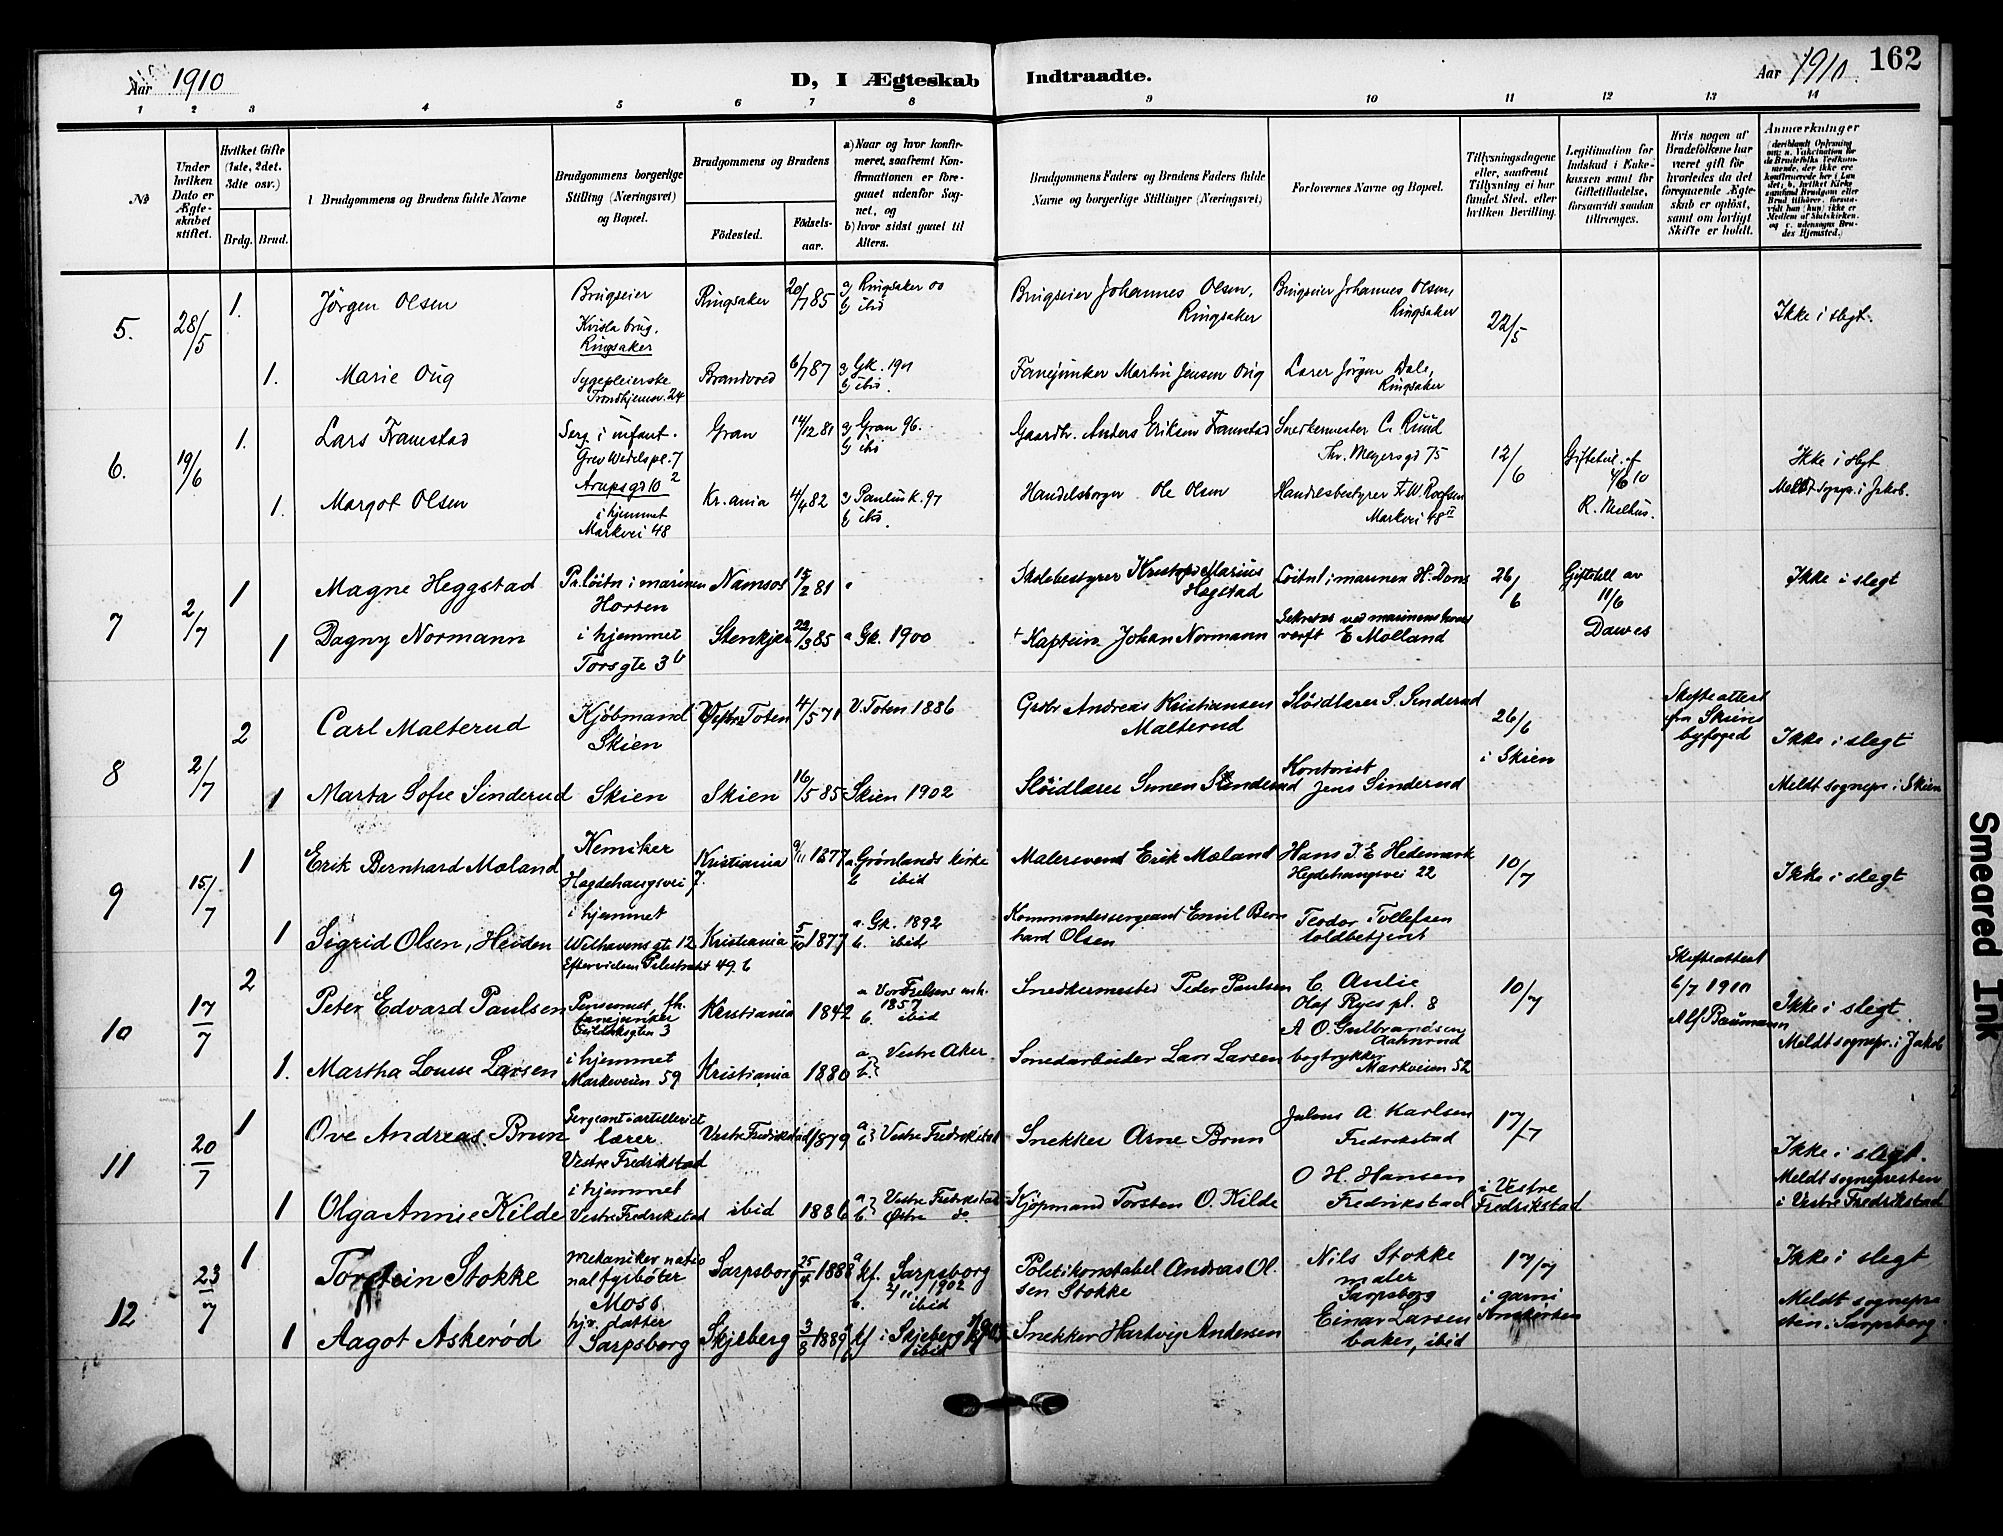 Aar 1910
D, I Ægteskab Indtraadte.
Aar 1910
162
1 2 3 4 5 6 7 8 9 10 11 12 13 14
No
Under hvilken Dato er Ægteskabet stiftet.
Hvilket Gifte (1ste, 2det. 3die osv.)
Brdg. Brud.
Brudgommens og Brudens fulde Navne
Brudgommens borgerlige Stilling (Næringsvei) og Bopæl.
Brudgommens og Brudens
Födested. Födselsaar.
a) Naar og hvor konfirmeret, saafremt Konfirmationen er foregaaet udenfor Sognet, og
b) hvor sidst gaaet til Alters.
Brudgommens Faders og Brudens Faders fulde Navne og borgerlige Stillinger (Næringsvei)
Forlovernes Navne og Bopæl.
Tillysningsdagene eller, saafremt Tillysning ei har fundet Sted, efter hvilken Bevilling.
Legitimation for Indskud i Enkekassen samt for Giftetilladelse, forsaavidt saadan tiltrænges.
Hvis nogen af Brudefolkene har været gift för hvorledes da det foregaaende Ægteskab er oplöst, samt om lovligt Skifte er holdt.
Anmærkninger
5. 28/5 1. Jörgen Olsen
Brugseier
Kvisla brug.
Ringsaker
Ringsaker 20/7 85 a) Ringsaker 00
b) ibid
Brugseier Johannes Olsen,
Ringsaker
Brugseier Johannes Olsen,
Ringsaker
22/5
Ikke i slegt.
1. Marie Oug
Sygepleierske
Trondhjemsv. 24
Brandvoed 6/7 87 a) Gk. 1901
b) ibid.
Fanejunker Martin Jensen Oug
Lærer Jörgen Dale,
Ringsaker
6. 19/6 1. Lars Framstad
Serg. i infant.
Grev Wedels pl. 7
Arupsgd 10 2
Gran 14/12 81 a) Gran 96.
b) ibid
Gaardbr. Anders Eriksen Framstad
Snedkermester C. Ruud
Thv. Meyersgd 75
12/6
Giftetil. af
4/6 10
R. Melhus.
Ikke i slegt
Meldt sognp. i Jakob.
1. Margot Olsen
i hjemmet
Markvei 48
Kr.ania 4/4 82 a) Paulus k. 97
b) ibid
Handelsborger Ole Olsen
Handelsbestyrer Fr. W. Roefsen
Markvei 48 II
7 2/7 1 Magne Heggstad
Pr.löitn i marinen
Horten
Namsos 15/2 81
Skolebestyrer Kristofer Marius
Hegstad
Löitn i marinen H. Dons
26/6
Giftetill av
11/6
Dawes
Ikke i slegt
1 Dagny Normann
i hjemmet
Torsgte 3 b
Stenkjær 22/3 85 a Gk. 1900
† Kaptein Johan Normann
Sekretær ved marinens hoved
verft E Molland
8 2/7 2 Carl Malterud
Kjöbmand
Skien
Vestre Toten 4/5 71 V. Toten 1886
Gbr Andreas Kristiansen
Malterud
Slöidlærer S. Sinderud
26/6
i Skien
Skifteattest
fra Skiens
byfoged
Ikke i slegt
Meldt sognepr. i Skien
1 Marta Sofie Sinderud
Skien
Skien 16/5 85 Skien 1902
Slöidlærer Simen Sinderud
Kontorist
Jens Sinderud
9 15/7 1 Erik Bernhard Mæland
Kemiker
Hegdehaugsvei 7.
Kristiania 9/11 1877 a Grønlands kirke
b ibid
Malersvend Erik Mæland
Hans J. E Hedemark
Hegdehaugsvei 22
10/7
Ikke i slegt
1 Sigrid Olsen, Heiden
i hjemmet
Welhavensgt 12
Eftervielsen Pilestrædet 49. b
Kristiania 5/10 1877 a. Gk. 1892
b. ibid
Kommandersergeant Emil Bern
hard Olsen
Teodor Tollefsen
toldbetjent
10 17/7 2 Peter Edvard Paulsen
Pensionist, fh.
fanejunker
Eilertsgten 3
Kristiania 1842 a Vor Frelsers menh.
1857
b. ibid
Snedkermester Peder Paulsen
C. Aulie
Olaf Ryes pl. 8
10/7
Skifteattest
6/7 1910
Alf Baumann
Ikke i slegt.
Meldt sognepr. i Jakob
1. Martha Louise Larsen
i hjemmet
Markveien 59
Kristiania 1880 a} Vestre Aker
b.}
Smedarbeider Lars Larsen
A. O. Gulbrandsen
Aahnrud
bogtrykker
Markveien 52
11 20/7 1 Ove Andreas Brun
Sergeant i artilleriet
lærer.
Vestre Fredrikstad
Vestre Fredrikstad 1879 a} b} Vestre Fredrikstad
Snekker Arne Brun
Julius A. Karlsen
Fredrikstad
17/7
i Vestre
Fredrikstad
Ikke i slegt.
Meldt sognepresten
i Vestre Fredrikstad
1 Olga Annie Kilde
i hjemmet
Vestre Fredrikstad
ibid 1886 a} Vestre Fredrikstad
b} Østre do.
Kjøpmand Torsten O. Kilde
O H. Hansen
Fredrikstad
12 23/7 1 Torstein Stokke
mekaniker natio
nal fysbøter
Moss
Sarpsborg 25/4 1888 a kf. Sarpsborg
1902
b. ibid
Politikonstabel Andreas Ol
sen Stokke
Nils Stokke
maler
Sarpsborg
17/7
i garni
sonskirken
Ikke i slegt
Meldt sognepre
sten i Sarpsborg
1 Aagot Askerød
hjv. datter
Sarpsborg
Skjeberg 3/8 1889 a kf i Skjeberg
b ibid
Snekker Hartvig Andersen
Einar Larsen
baker, ibid
Smeared Ink